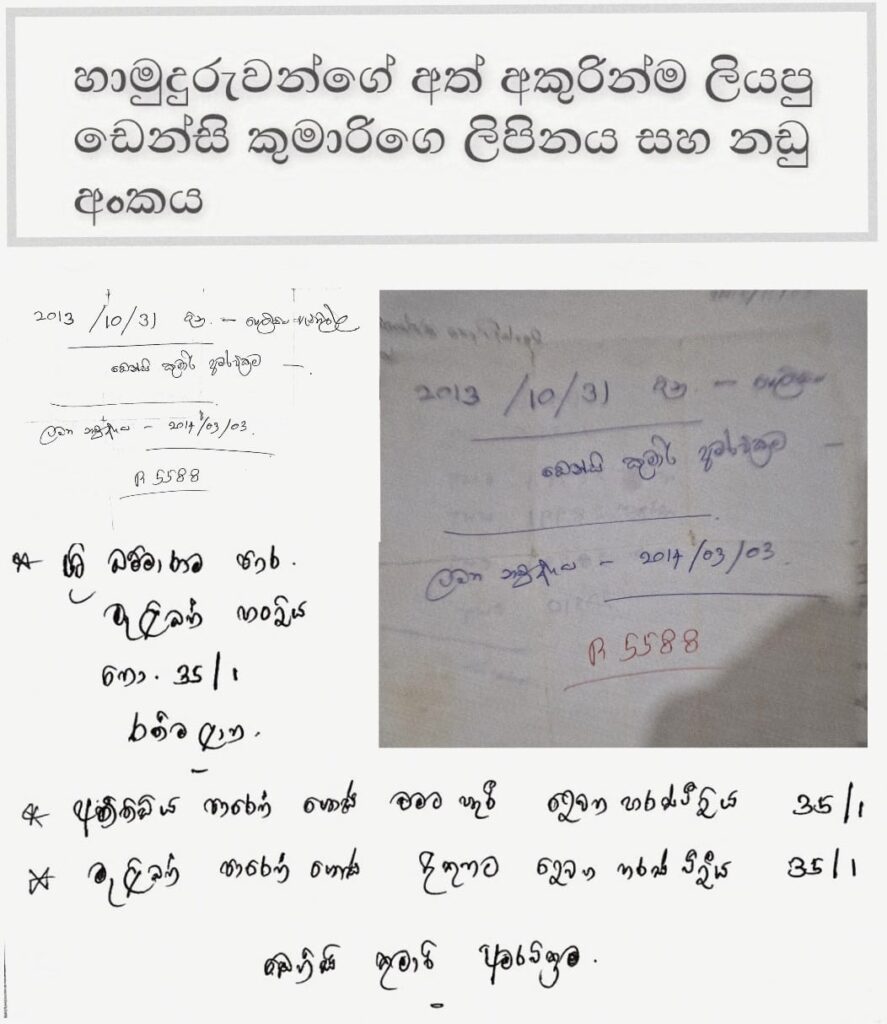 හාමුදුරුවන්ගේ අත් අකුරින්ම ලියපු
ඩෙන්සි කුමාරිගෙ ලිපිනය සහ නඩු
අංකය
2013 /10/31 දින. —
ඩෙන්සි කුමාරි අමරවික්‍රම —.
— 2014/03/03.
R 5588
2013 /10/31 දින. —
ඩෙන්සි කුමාරි අමරවික්‍රම —
— 2014/03/03.
R 5588
* ශ්‍රී ධම්මාරාම පාර.
මැලිබන් හංදිය
නො. 35/1
රත්මලාන.
* පාරෙන් ගොස් වමට හැරී දෙවන හරස් වීදිය 35/1
* මැලිබන් පාරෙන් ගොස් දකුණට දෙවන හරස් වීදිය 35/1
ඩෙන්සි කුමාරි අමරවික්‍රම.